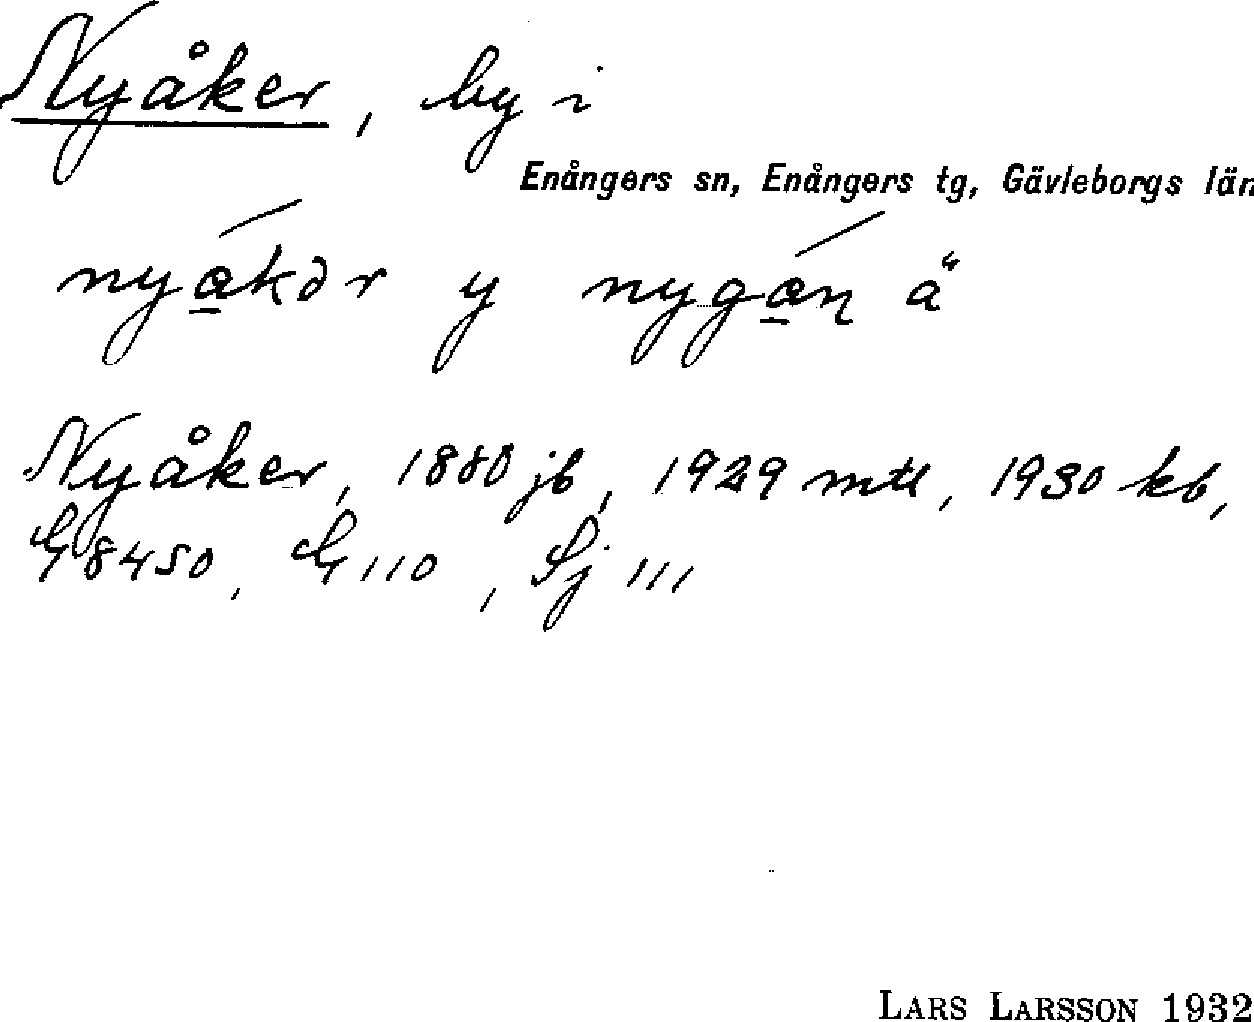 Nyåker, by i
Enångers sn, Enångers tg, Gävleborgs län
Nyåker, 1880 jb, 1929 mtl, 1930 kb,
G 8450, G 110, Sj 111
LARS LARSSON 1932